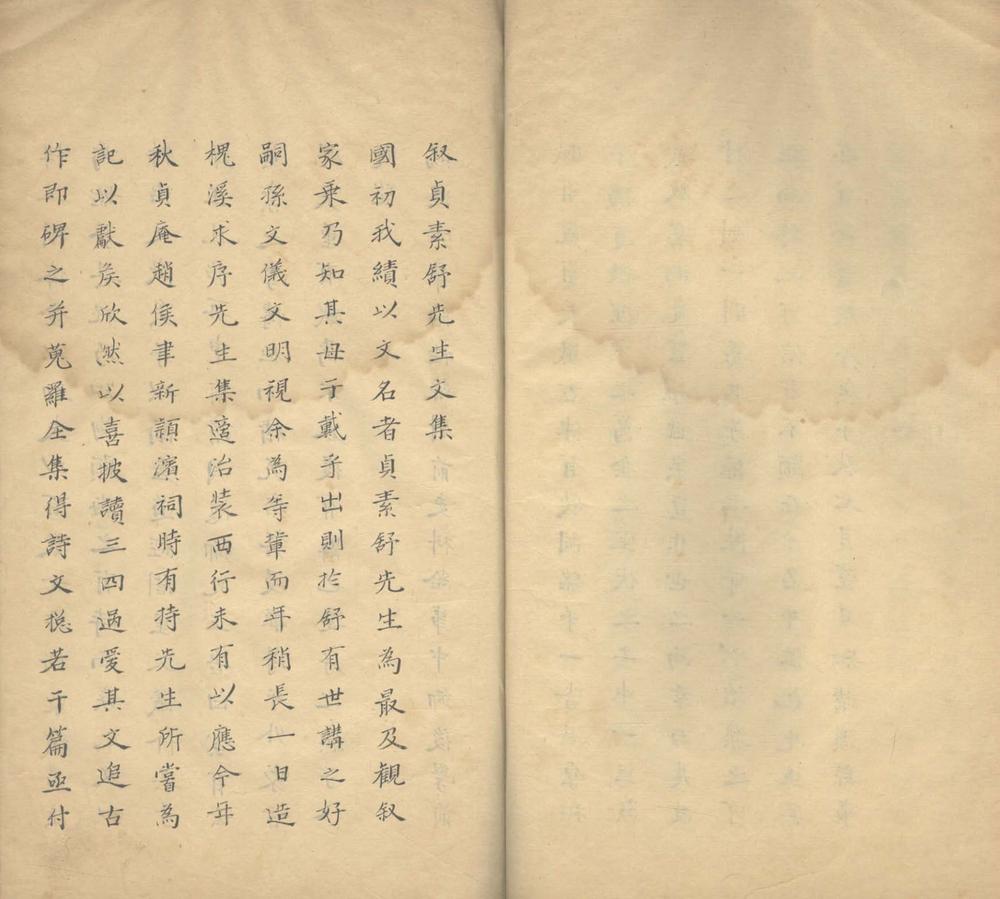 叙貞素舒先生文集
國初我績以文名者貞素舒先生為最及觀叙
家乘乃知其母于戴乎出則於舒有世講之好
嗣孫文儀文明視余為等軰而年稍長一日造
槐溪求序先生集適治装西行未有以應今年
秋貞庵趙侯聿新頴濱祠時有持先生所嘗為
記以獻矦欣然以喜披讀三四過愛其文追古
作即碑之并蒐羅全集得詩文稔若干篇亟付